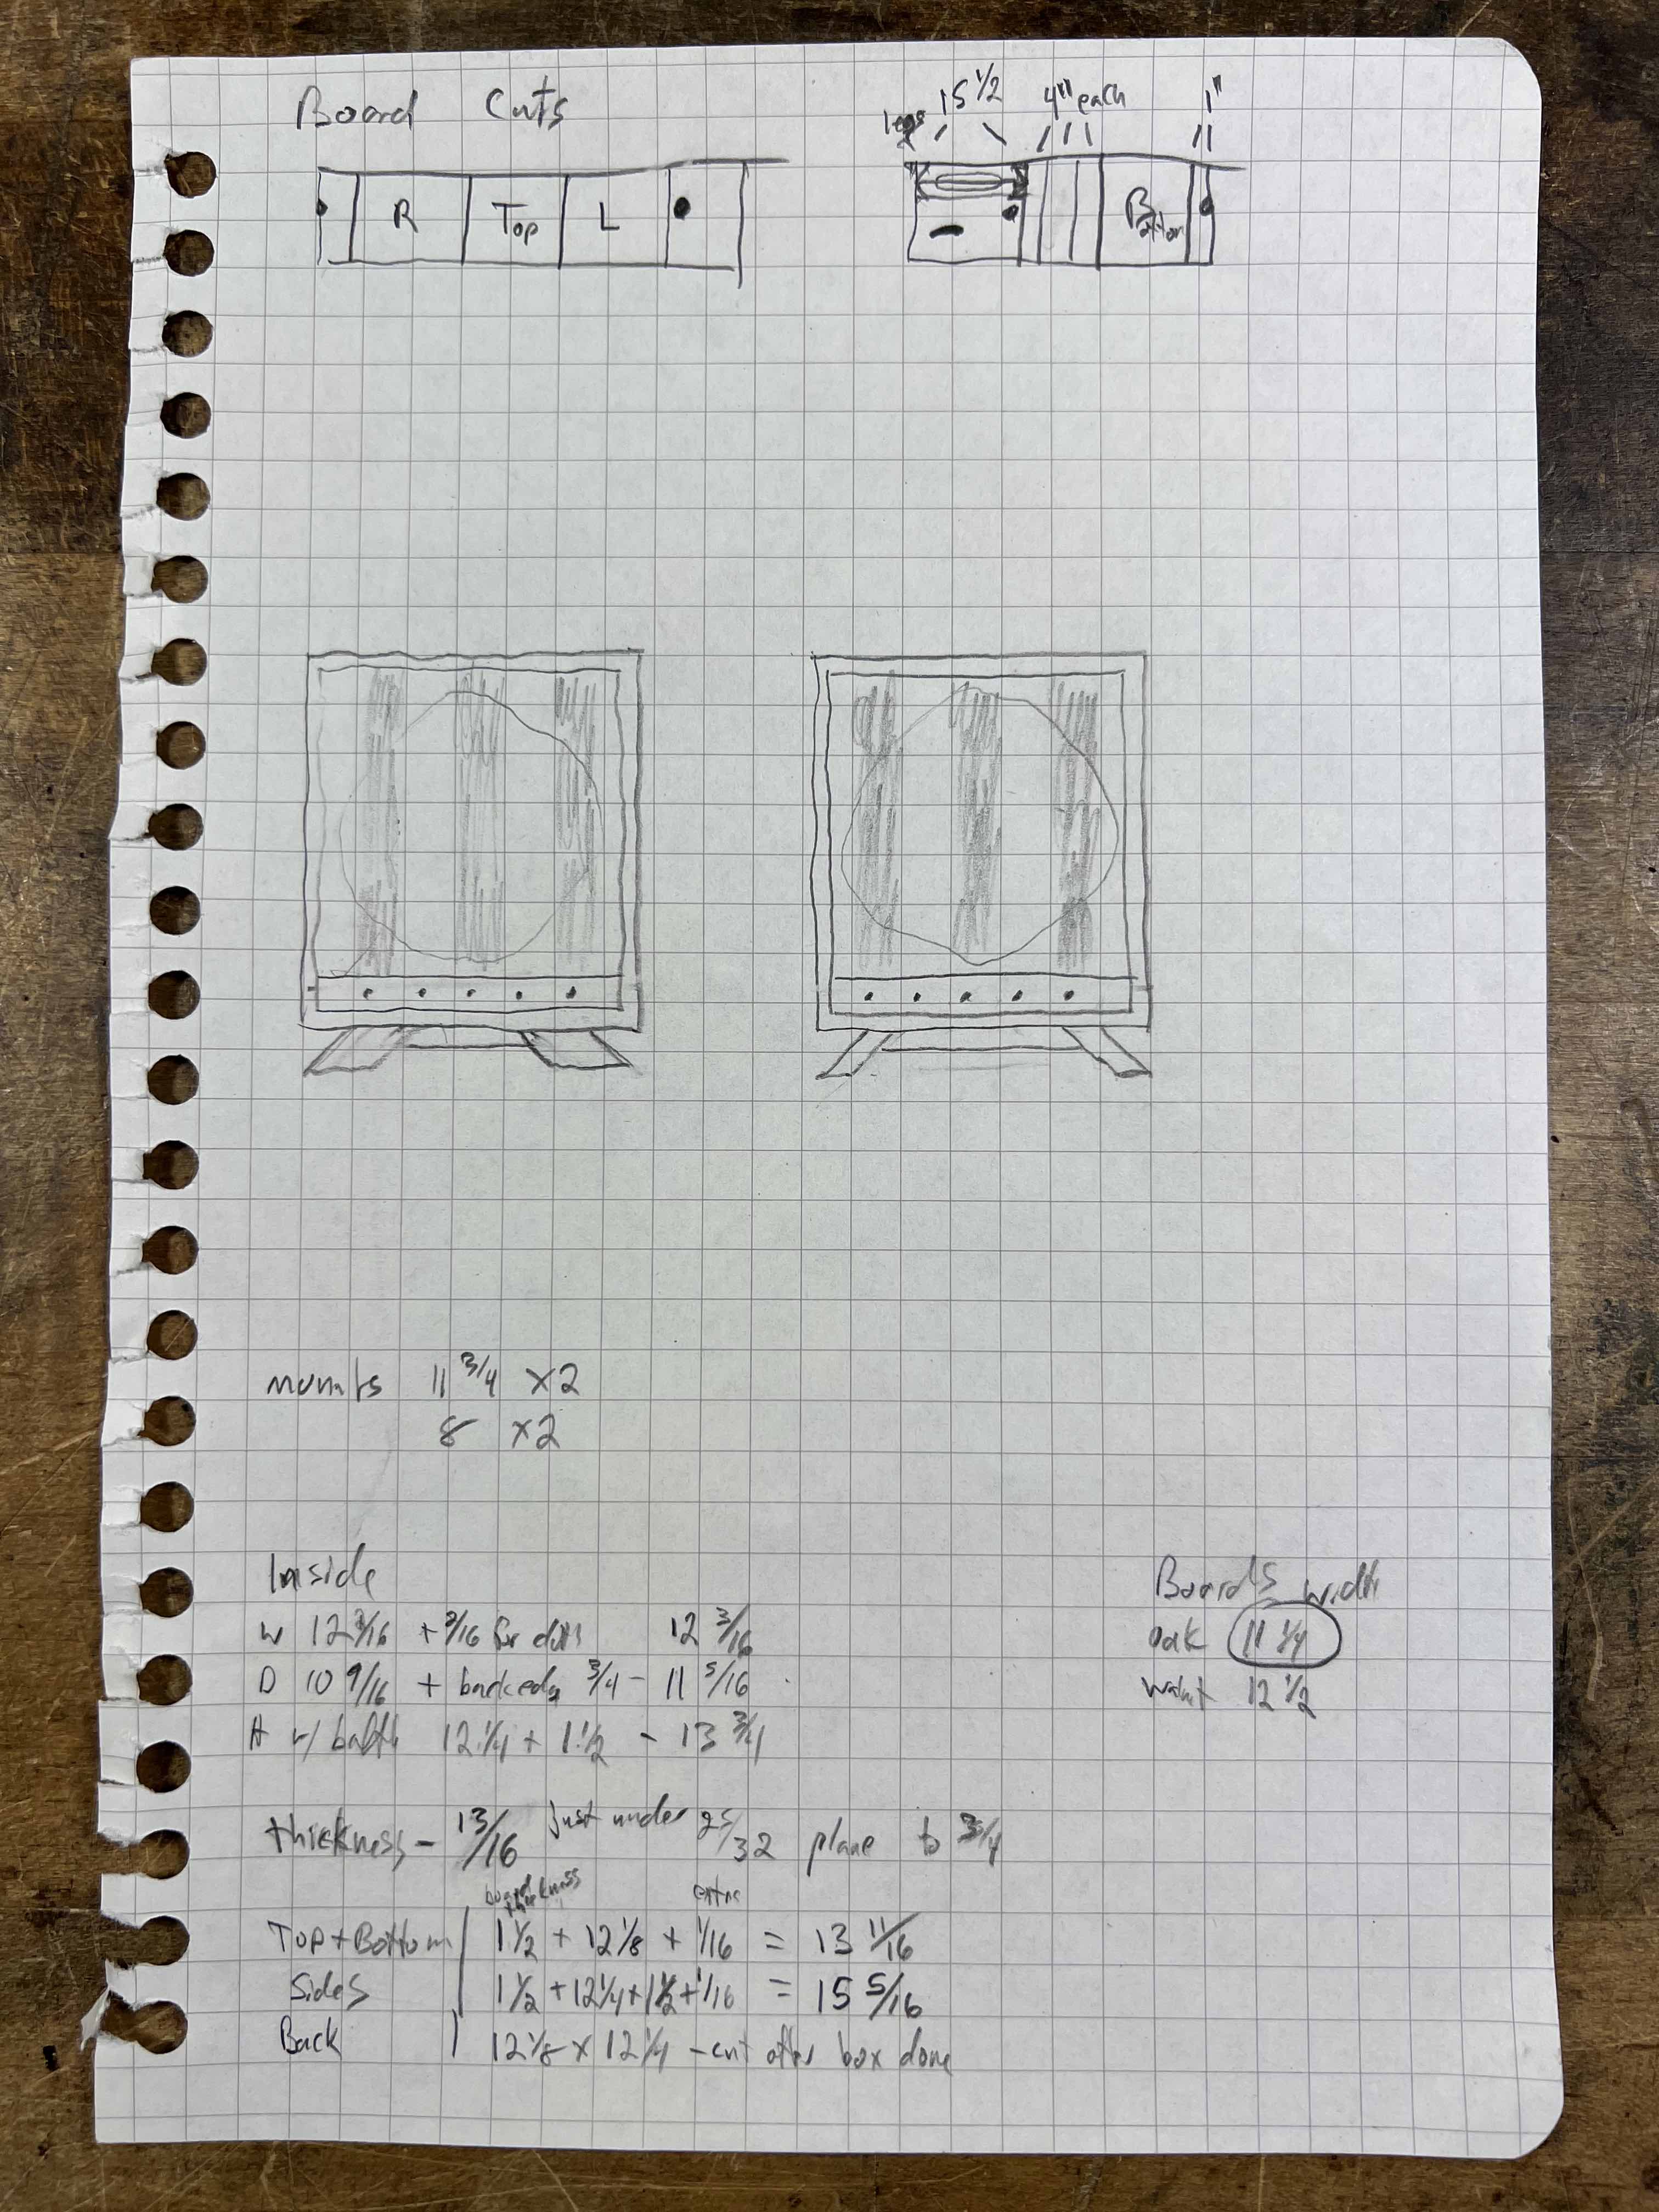 Board Cuts
legs 15 1/2 4" each 1"
R Top L
Bottom
mounts 11 3/4 x2
8 x2
Inside
W 12 3/16 + 3/16 for 12 3/16
D 10 9/16 + back edge 3/4 - 11 5/16
H w/ baffle 12 1/4 + 1 1/2 - 13 3/4
Boards width
oak 11 1/4
walnut 12 1/2
thickness - 13/16 just under 25/32 plane to 3/4
board thickness extra
Top + Bottom | 1 1/2 + 12 1/8 + 1/16 = 13 11/16
Sides | 1 1/2 + 12 1/4 + 1 1/2 + 1/16 = 15 5/16
Back | 12 1/8 x 12 1/4 - cut after box done